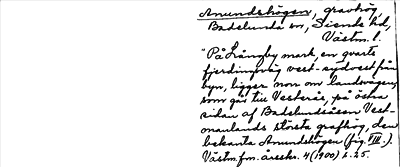 Anundshögen, gravhög,
Badelunda sn, Siende hd,
Västm. l.
"På Långby mark, en qvarts
fjerdingsväg vest-sydvest från
byn, ligger norr om landsvägen,
som går till Vesterås, på östra
sidan af Badelundsåsen Vest-
manlands största grafhög, den
bekanta Anundshögen (fig. VII.).
Västm. fm. årsskr. 4 (1900) s. 25.